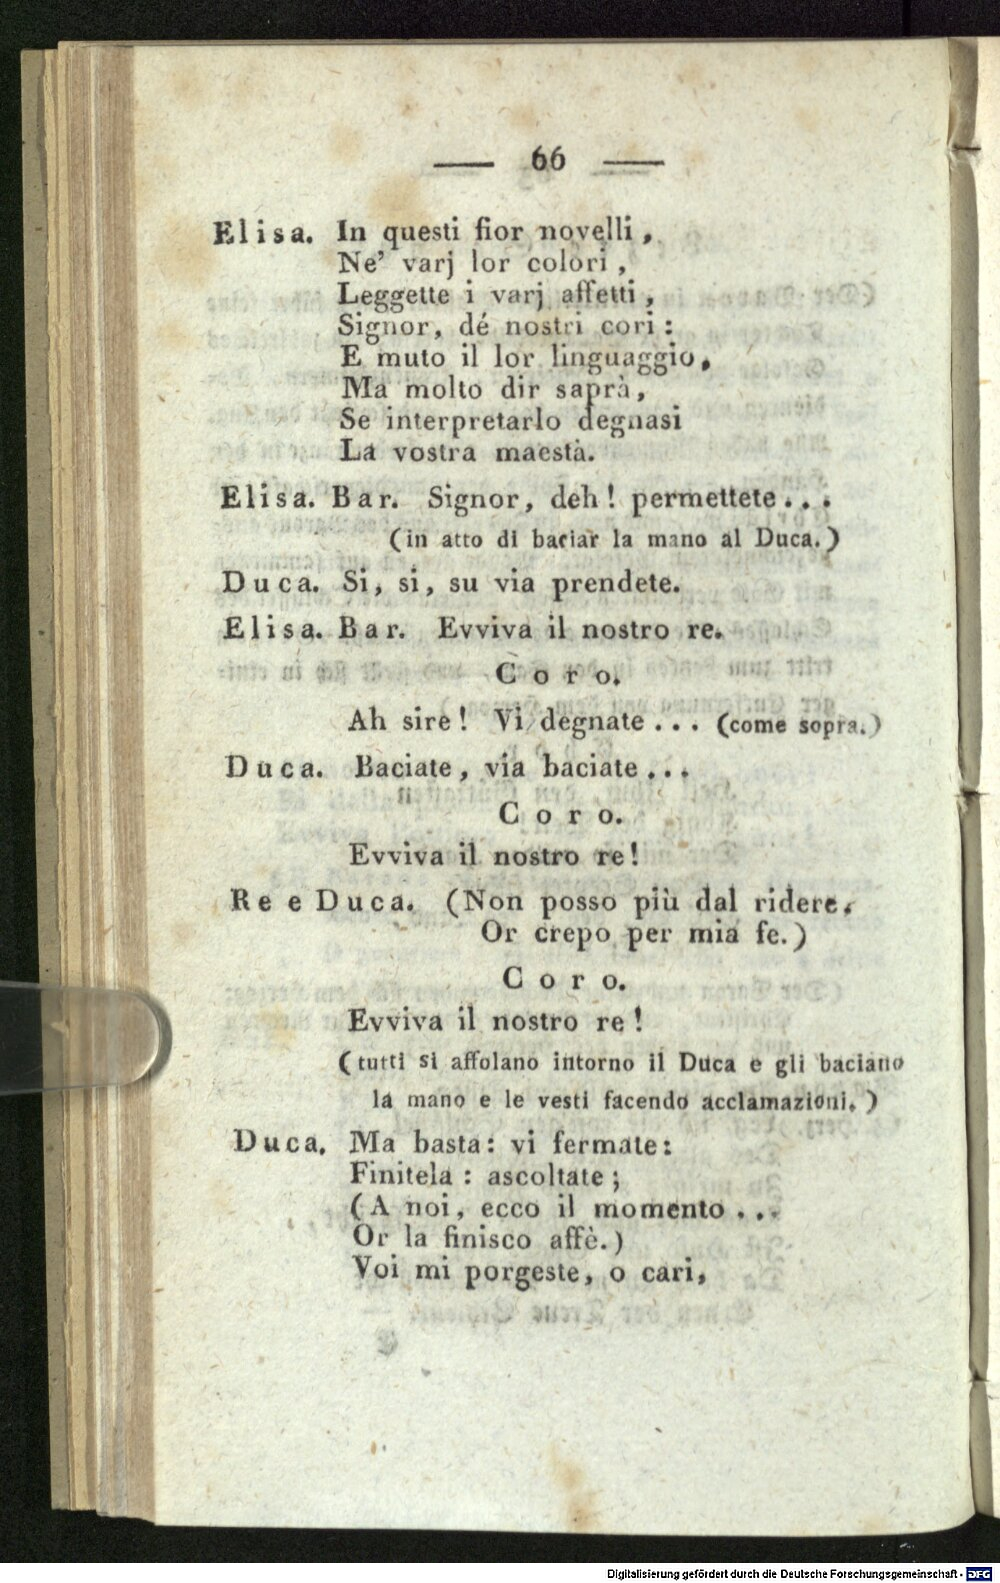 — 66 —
Elisa. In questi fior novelli,
Ne' varj lor colori,
Leggette i varj affetti,
Signor, dé nostri cori:
E muto il lor linguaggio,
Ma molto dir saprà,
Se interpretarlo degnasi
La vostra maestà.
Elisa. Bar. Signor, deh! permettete...
(in atto di baciar la mano al Duca.)
Duca. Si, si, su via prendete.
Elisa. Bar. Evviva il nostro re.
Coro.
Ah sire! Vi degnate... (come sopra.)
Duca. Baciate, via baciate...
Coro.
Evviva il nostro re!
Re e Duca. (Non posso più dal ridere.
Or crepo per mia fe.)
Coro.
Evviva il nostro re!
(tutti si affolano intorno il Duca e gli baciano
la mano e le vesti facendo acclamazioni.)
Duca. Ma basta: vi fermate:
Finitela: ascoltate;
(A noi, ecco il momento...
Or la finisco affè.)
Voi mi porgeste, o cari,
Digitalisierung gefördert durch die Deutsche Forschungsgemeinschaft - DFG